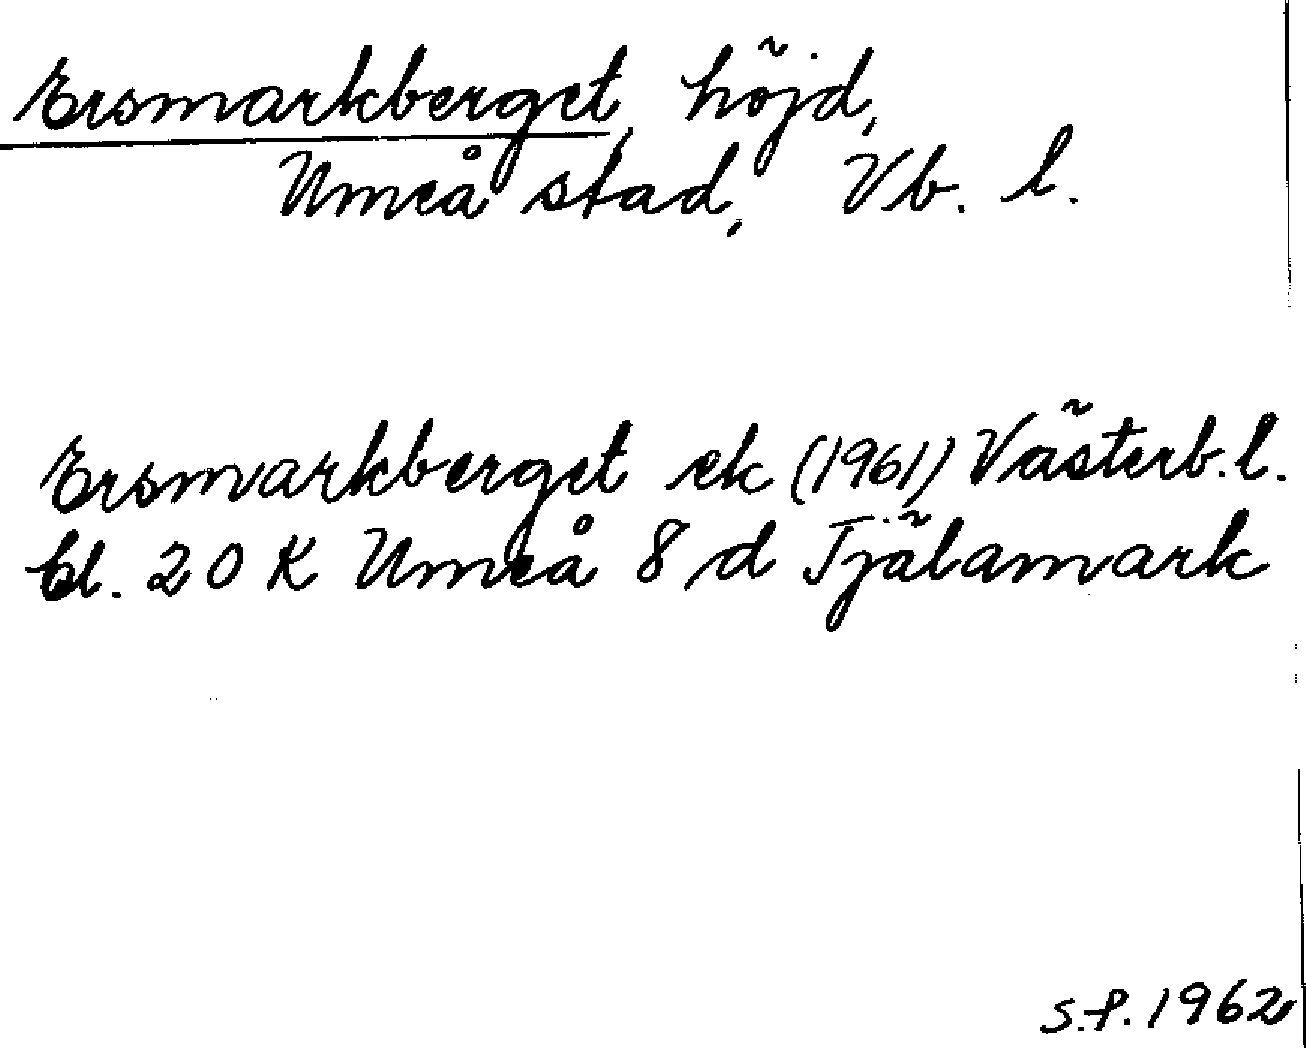 Ersmarkberget, höjd,
Umeå stad, Vb. l.
Ersmarkberget ek (1961) Västerb. l.
bl. 20 K Umeå 8 d Tjälamark
S.P. 1962